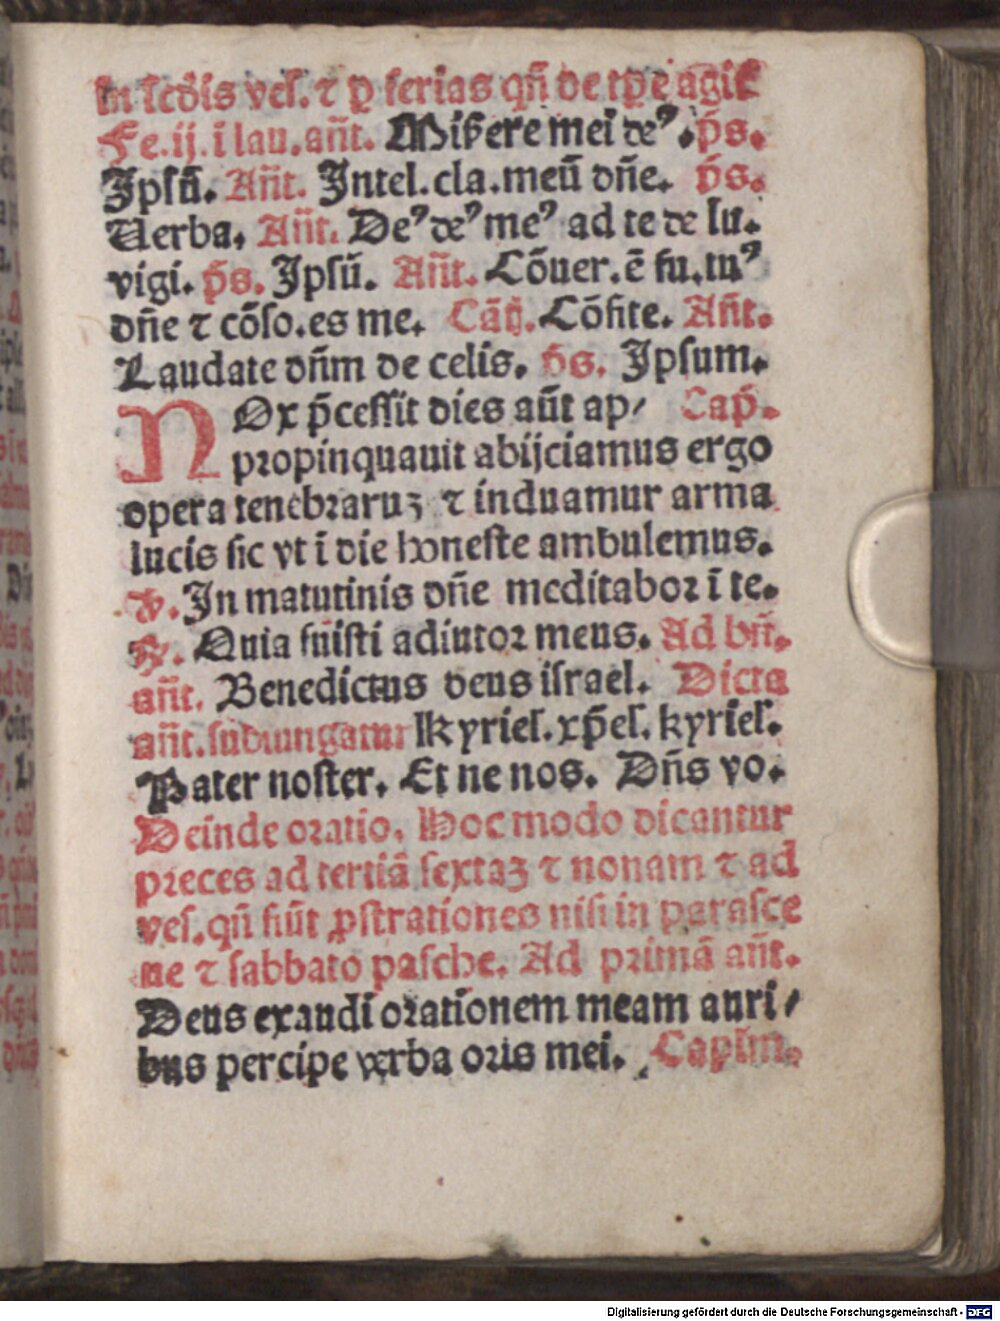 in scdis vesꝭ. ⁊ ꝑ ferias qñ de tp̄e agiť
Fe.ij. ĩ lau. añt. Miẜere mei deꝰ. p̄s.
Ipsũ. Añt. Intel. cla. meũ dñe. p̄s.
Uerba. Añt. Deꝰ deꝰ meꝰ ad te de lu.
vigi. p̄s. Ipsũ. Añt. Cõuer. ẽ fu. tuꝰ
dñe ⁊ cõso. es me. Cãt. Cõfite. Añt.
Laudate dñm de celis. p̄s. Ipsum.
NOx p̄cessit dies aũt ap/ Cap̄.
propinquauit abijciamus ergo
opera tenebraruꝫ ⁊ induamur arma
lucis sic vt ĩ die honeste ambulemus.
℣. In matutinis dñe meditabor ĩ te.
℟. Quia fuisti adiutor meus. Ad bñ.
añt. Benedictus deus israel. Dicta
añt. subiungatur Kyriel. xp̄el. kyriel.
Pater noster. Et ne nos. Dñs vo.
Deinde oratio. Hoc modo dicantur
preces ad tertiã sextaꝫ ⁊ nonam ⁊ ad
ves. qñ fiũt ꝓstrationes nisi in parasce
ue ⁊ sabbato pasche. Ad primã añt.
Deus exaudi orationem meam auri/
bus percipe verba oris mei. Caplm.
Digitalisierung gefördert durch die Deutsche Forschungsgemeinschaft - DFG